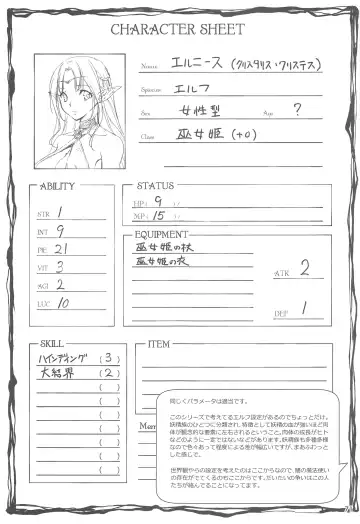 CHARACTER SHEET
Name エルニース (クリスタリス・クリステス)
Species エルフ
Sex 女性型 Age ?
Class 巫女姫 (+0)
ABILITY
STR 1
INT 9
PIE 21
VIT 3
AGI 2
LUC 10
STATUS
HP ( 9 )
MP ( 15 )
EQUIPMENT
巫女姫の杖
巫女姫の衣
ATK 2
DEF 1
SKILL
ハインディング (3)
大結界 (2)
ITEM
同じくパラメータは適当です。
このシリーズで考えてるエルフ設定があるのでちょっとだけ。
妖精族のひとつに分類され、特徴として妖精の血が強いほど肉
体が観念的な要素に左右されるということ。肉体の成長がヒト
などのように一定ではないなどがあります。妖精族も多種多様
なので色々あって程度による差が幅広いですが、まあふわっと
した感じで。
世界観やらの設定を考えたのはここからなので、闇の魔法使い
の存在がでてくるのもここからです。だいたいの争いはこの人
たちが絡んでることになってます。